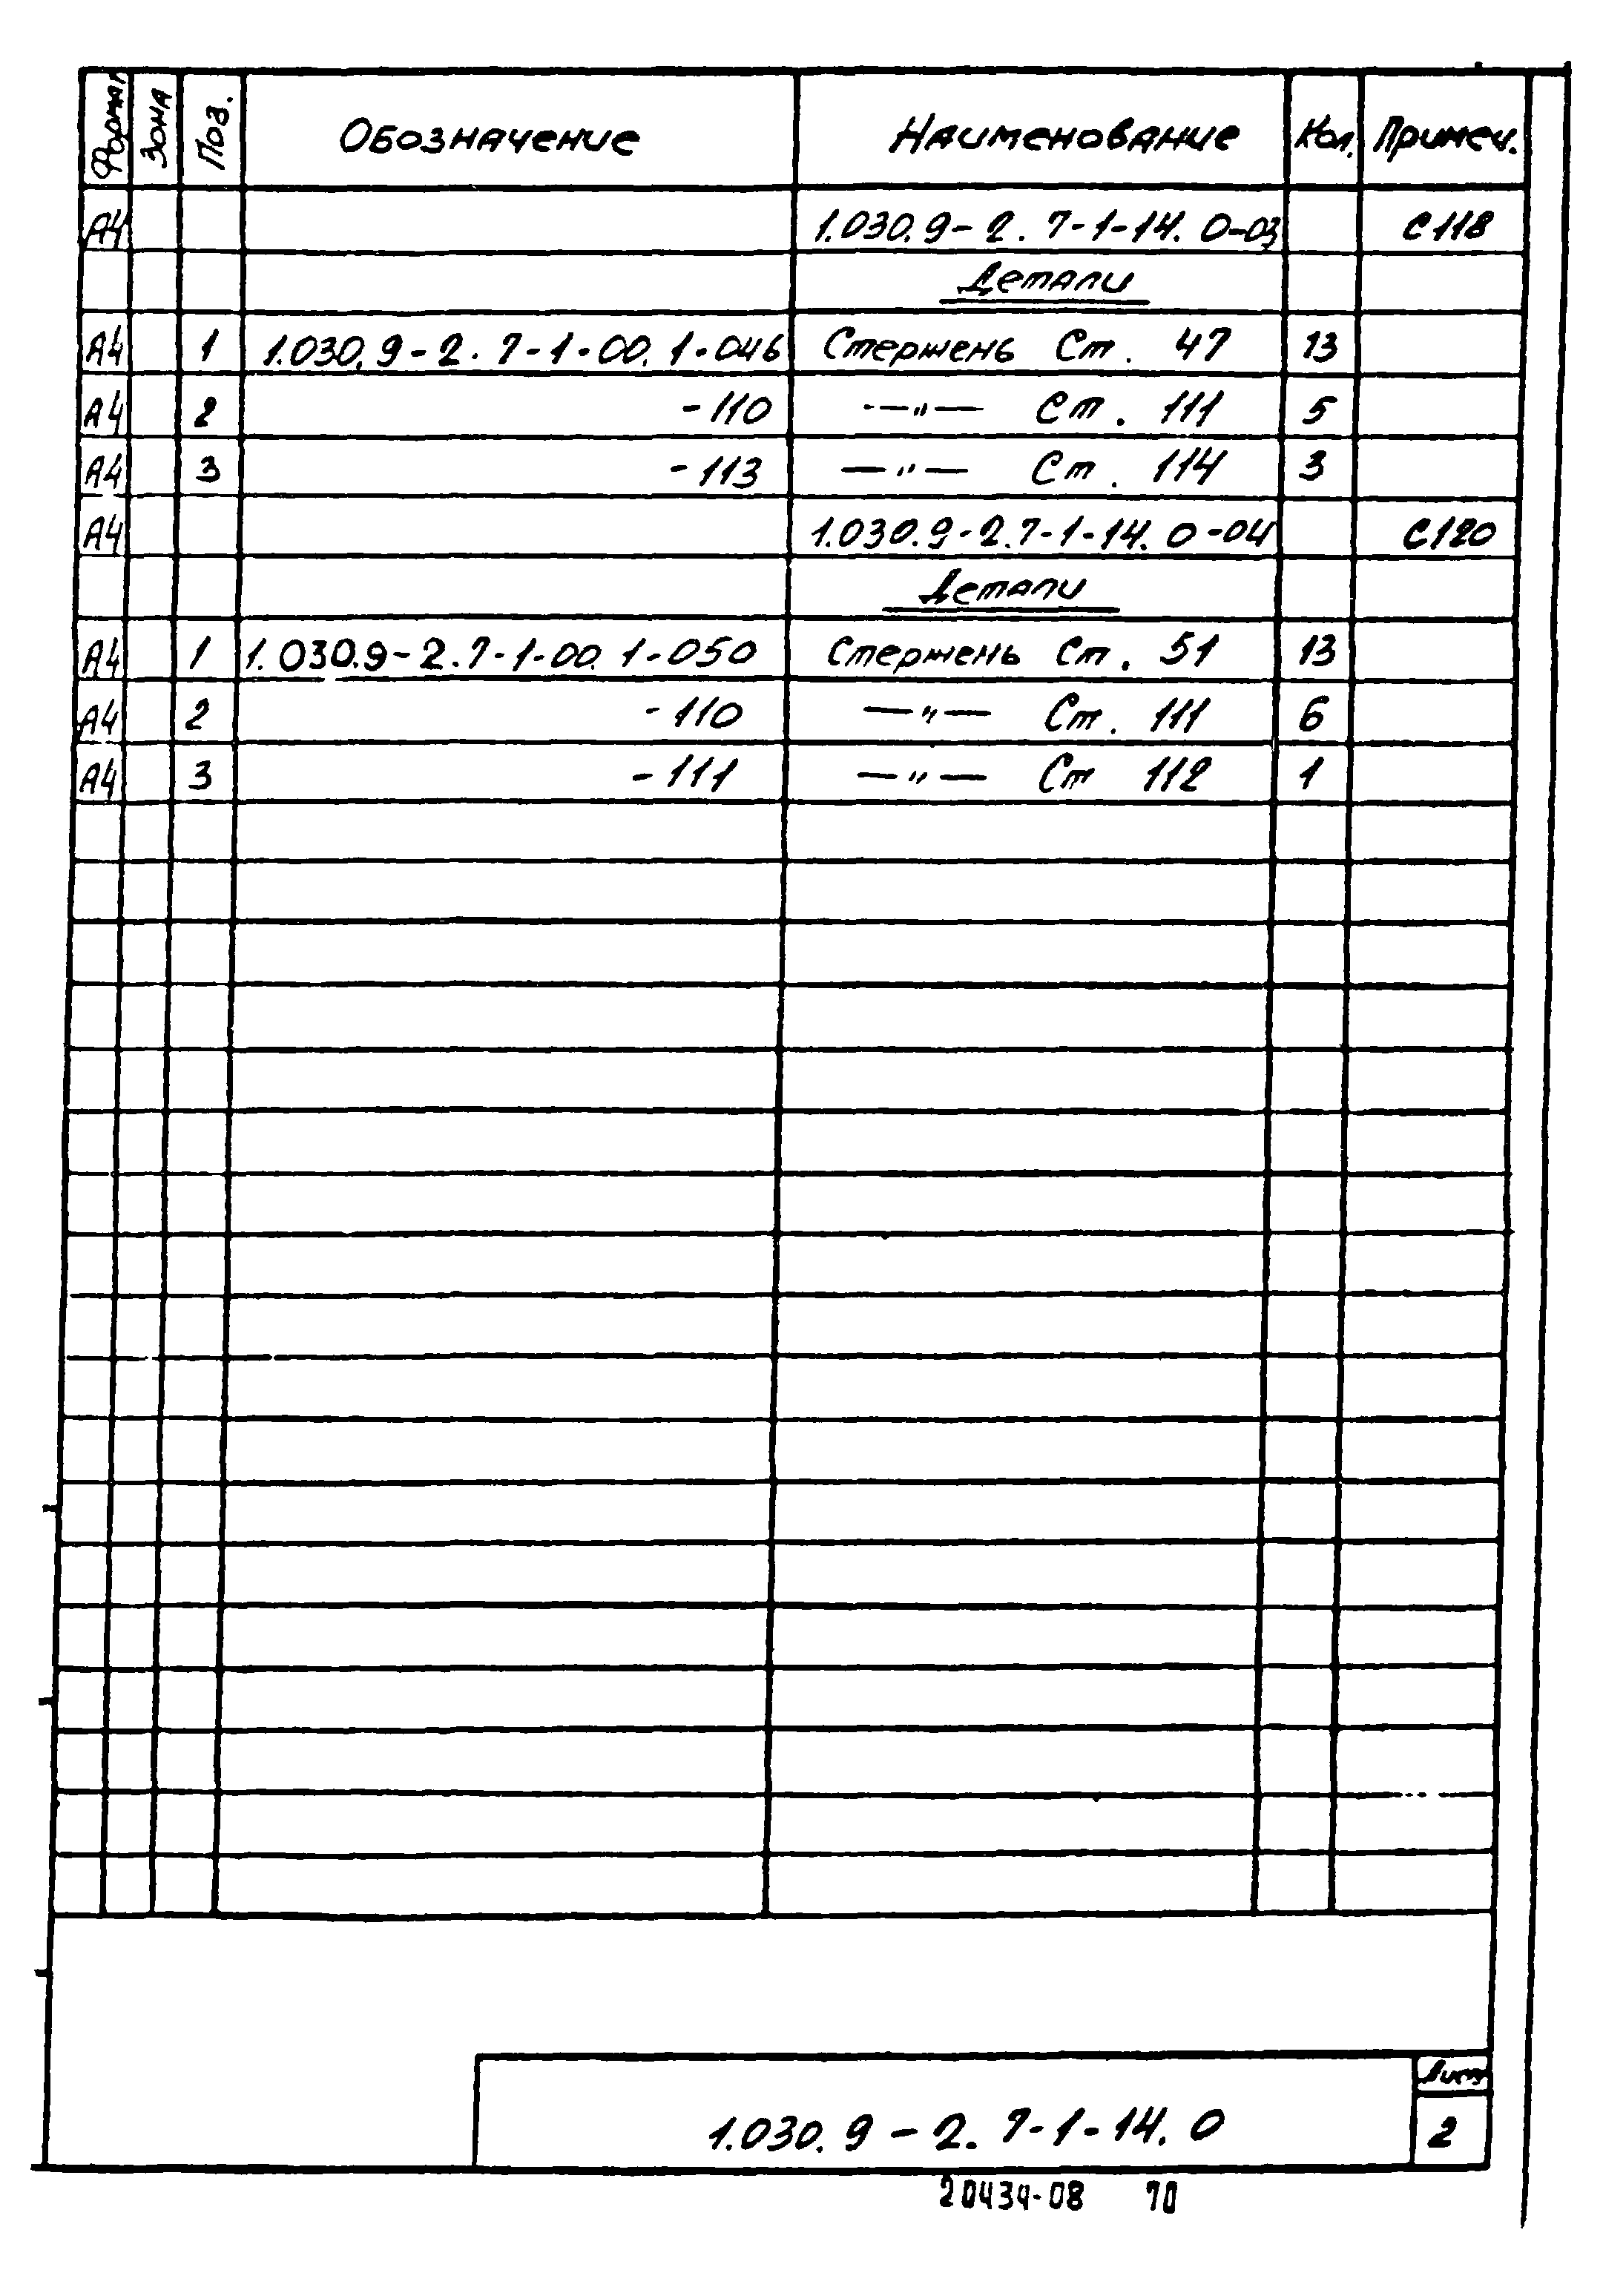 Формат Зона Поз. Обозначение Наименование Кол. Примеч.
А4 1.030.9-2.7-1-14.0-03 С118
Детали
А4 1 1.030.9-2.7-1-00.1-046 Стержень Ст. 47 13
А4 2 -110 —"— Ст. 111 5
А4 3 -113 —"— Ст. 114 3
А4 1.030.9-2.7-1-14.0-04 С120
Детали
А4 1 1.030.9-2.7-1-00.1-050 Стержень Ст. 51 13
А4 2 -110 —"— Ст. 111 6
А4 3 -111 —"— Ст 112 1
Лист
1.030.9-2.7-1-14.0 2
20434-08 70